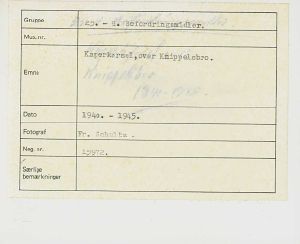 Gruppe
- d. Befordringsmidler.
Mus.nr.
Emne
Kaperkørsel, over Knippelsbro.
Knippelsbro
Dato 1940. - 1945.
Fotograf Fr. Schultz.
Neg. nr.
Særlige
bemærkninger